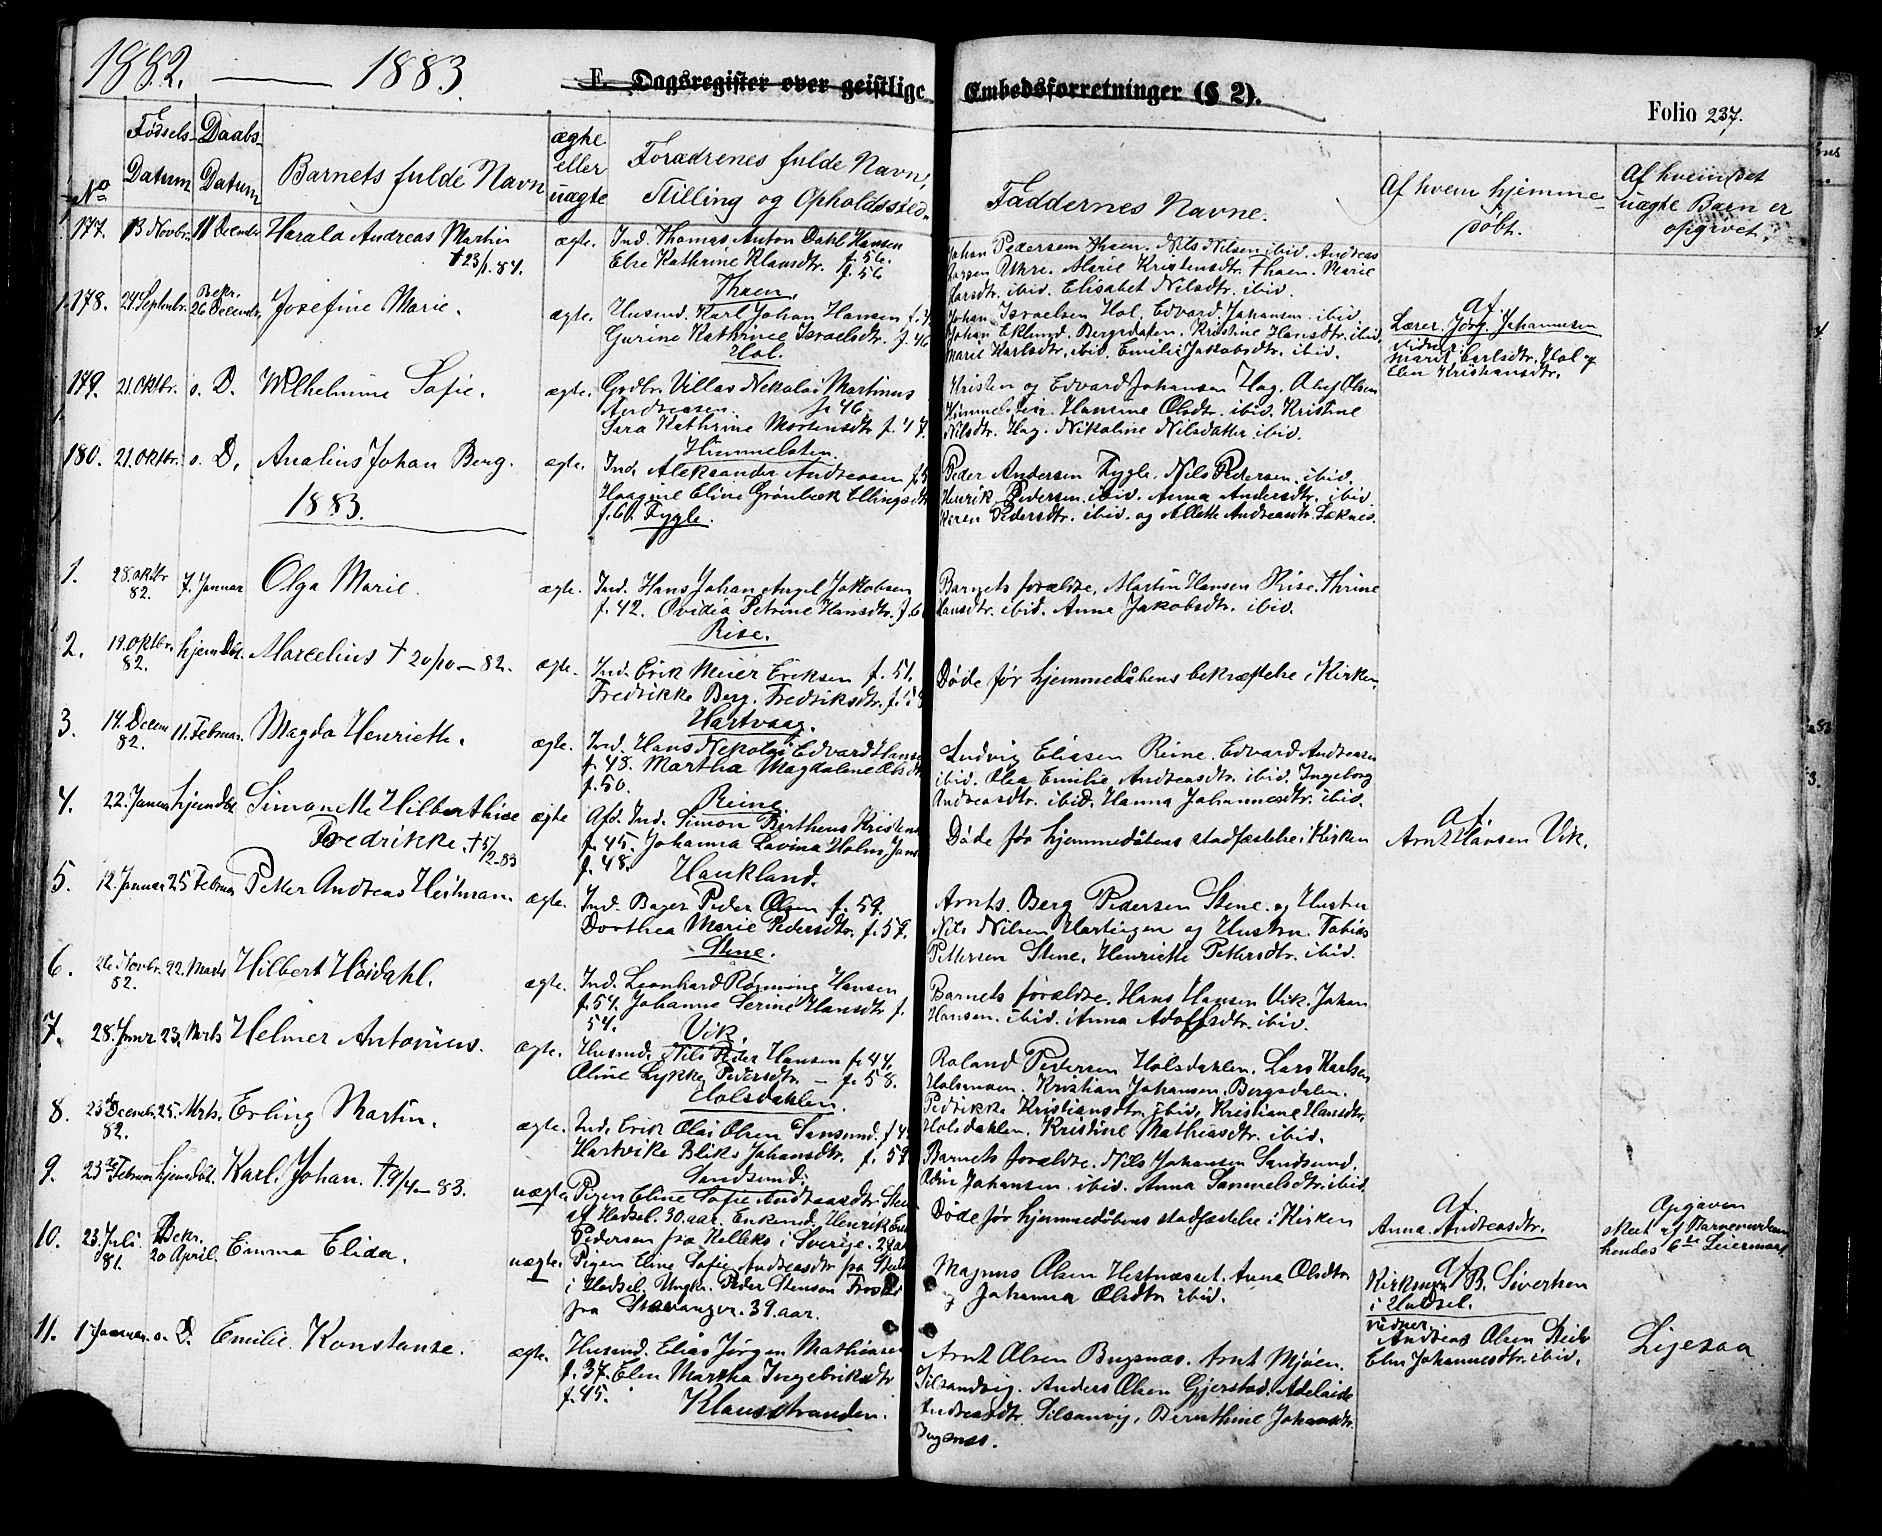 1882. — 1883.
F. Dagsregister over geistlige Embedsforretninger (§ 2).
Folio 237.
No
Fødsels-Datum
Daabs-Datum
Barnets fulde Navn
ægte eller uægte
Forældrenes fulde Navn, Stilling og Opholdssted.
Faddernes Navne.
Af hvem hjemmedøbt.
Af hvem det uægte Barn er opgivet.
177. 13 Novbr. 11 Decembr Harald Andreas Martin
† 23/1. 84.
ægte. Ind. Thomas Anton Dahl Hansen
Else Kathrine Klausdtr. f. 56
Thaen.
Johan Pedersen Thaen. Nils Nilsen ibid. Andreas
Ukre. Marie Kristensdtr. Thaen. Marie
Larsdtr. ibid. Elisabet Nilsdtr. ibid.
178. 24 Septembr. Bekr. 26 Decembr. Josefine Marie.
ægte. Husmd. Karl Johan Hansen
Gurine Kathrine Israelsdtr. f. 46
Hol.
Johan Israelsen Hol, Edvard Johansen ibid.
Johan Eklund. Bergsdalen. Kristine Hansdtr. ibid.
Marie Karlsdtr. ibid. Emilie Jakobsdtr. ibid.
af
Lærer. Jørg. Johannesen
Vidner
Marit Carlsdtr. Hol og
Elen Kristiansdtr.
179. 21. Oktbr. s. D. Wilhelmine Sofie.
ægte. Grdbr. Villas Nekolai Martinus
Andreasen. f. 46.
Sara Kathrine Mortensdtr. f. 47.
Himmelsten.
Kristen og Edvard Johansen Hag. Olsen
Himmelsten. Hansine Olsdtr. ibid. Kristine
Nilsdtr. Hag. Nikoline Nilsdatter ibid.
180. 21. Oktbr. s. D. Analius Johan Berg.
ægte. Ind. Aleksander Andreasen
Haagine Eline Grønbæk Ellingsdtr.
Fygle.
Peder Andersen Fygle. Nils Pedersen. ibid.
Henrik Pedersen. ibid. Anna Andersdtr. ibid
Karen Pedersdtr. ibid. og Allette Andreasdtr. Leknes.
1883.
1. 28. oktbr 82. 7. Januar Olga Marie.
ægte. Ind. Hans Johan Angel Jakobsen
f. 42. Ovidia Petrine Hansdtr.
Rise.
Barnets forældre, Martin Hansen Rise. Thrine
Hansdtr. ibid. Anne Jakobsdtr. ibid.
2. 19. Oktbr. 82. hjemdbt. Marcelius † 20/10 – 82.
ægte. Ind. Erik Meier Eriksen f. 51.
Fredrikke Berg. Fredriksdtr.
Hartvaag.
Døde før hjemmedåbens bekræftelse i Kirken.
3. 14. Decem 82. 11. Februar. Magda Henriette.
ægte. Ind. Hans Nekolai Edvard Hansen
f. 48. Martha Magdalene Olsdtr.
f. 50.
Reine.
Ludvig Eliasen Reine. Edvard Andreasen
ibid. Olea Emilie Andreasdtr. ibid. Ingeborg
Andreasdtr. ibid. Hanna Johannesdtr. ibid.
4. 22. Januar hjemdbt Simonette Hilberthine
Fredrikke. † 5/2-83
ægte Afd. Ind. Simon Berthens Kristensen
f. 45. Johanna Lovina Holm Jans
f. 48.
Haukland.
Døde før hjemmedåbens stadfæstelse i Kirken
af
Arnt Hansen Vik.
5. 12. Januar 25 Februar Petter Andreas Heitman.
ægte. Ind. Bager Peder Olsen f. 59.
Dorthea Marie Pedersdtr. f. 57.
Stene.
Arnts. Berg Pedersen Stene. og Hustru
Nils Nilsen Hartingen og Hustru. Tobias
Pettersen Stene, Henriette Pettersdtr. ibid.
6. 26. Novbr. 82. 22. Marts Hilbert Høidahl.
ægte. Ind. Leonhard Rønning Hansen
f. 54. Johanne Serine Hansdtr f.
54.
Vik.
Barnets forældre. Hans Hansen Vik. Johan
Hansen. ibid. Anna Adolfsdtr. ibid.
7. 28. Januar 23. Marts Helmer Antonius.
ægte. Husmd. Nils Peder Hansen f. 44.
Oline Lykke Pedersdtr – f. 58.
Holsdahlen.
Roland Pedersen Holsdahlen. Lars Karlsen
Holsmoen. Kristian Johansen, Bergsdalen.
Pedrikke Kristiansdtr. ibid, Kristiane Hansdtr.
Holsdahlen. Kristine Mathiasdtr. ibid.
8. 23 Decembr. 82. 25. Mrts. Erling Martin.
ægte. Ind. Erik Olai Olsen Sandsund.
Hartvikke Bliks Johansdtr. f. 59
Sandsund.
Barnets forældre. Nils Johansen Sandsund.
Odin Johansen. ibid. Anna Sammelsdtr. ibid.
9. 23 Februar hjemdbt. Karl. Johan. † 9/4 – 83.
uægte Pigen Eline Sofie Andreasdtr.
af Hadsel. 30. aar. Enkemd. Henrik
Pedersen fra Kelleks i Sverige. 29 aar
Døde før hjemmedåbens stadfæstelse i Kirken
Af
Anna. Andreasdtr.
Opgaven
skeet af Barnemoderen
hendes 6te Leiermaal.
10. 23. Juli 81. Bekr. 20 April. Emma Elida.
uægte. Pigen Eline Sofie Andreasdtr fra
i Hadsel. Ungk. Peder Stenson
fra Stavanger. 39. aar.
Magnus Olsen Hestnæsset. Anna Olsdtr
og Johanna Olsdtr ibid.
af
Kirkesanger B. Sivertsen
i Hadsel.
Vidner.
Andreas Olsen
Elen Johannesdtr. ibid.
Ligesaa
11. 1 Januar. s. D. Emilie. Konstanse.
ægte. Husmd. Elias Jørgen Mathiasen
f. 37. Elen Martha Ingebriksdtr
f. 45.
Klausstranden.
Arnt Olsen Bugsnæs. Arnt Mjøen.
Silsandvig. Anders Olsen Gjerstad. Adelaide
Andreasdtr. Silsanvig, Bernthine Johansdtr.
Bugsnæs.